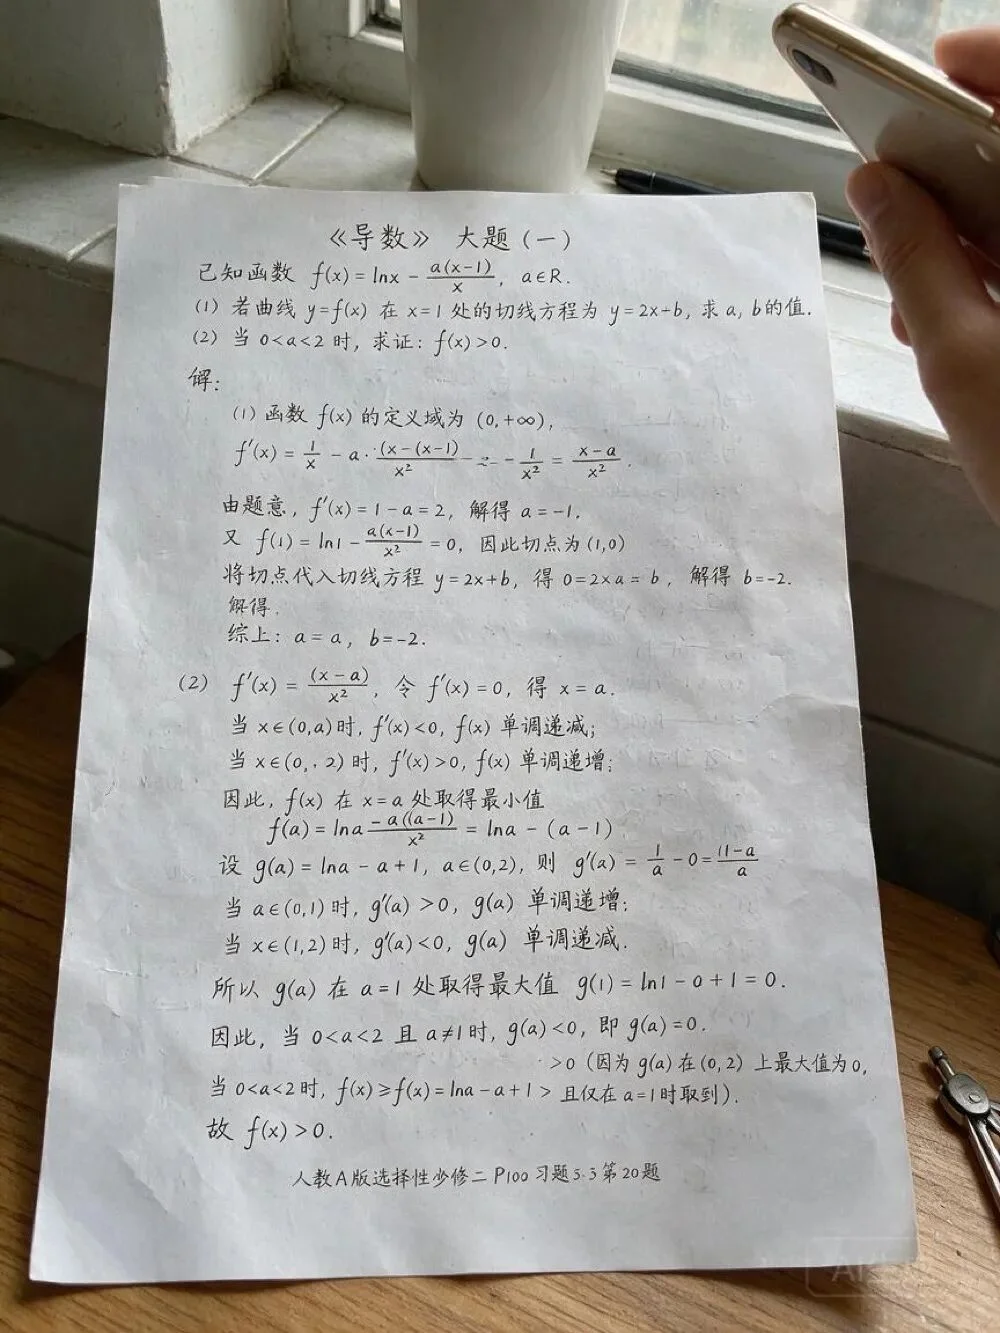 《导数》 大题(一)
已知函数 f(x)=lnx-a(x-1)/x, a∈R.
(1) 若曲线 y=f(x) 在 x=1 处的切线方程为 y=2x+b, 求 a, b的值.
(2) 当 0<a<2 时, 求证: f(x)>0.
解:
(1) 函数 f(x) 的定义域为 (0,+∞),
f′(x)=1/x-a·(x-(x-1)/x² - 1/x²=x-a/x².
由题意, f′(x)=1-a=2, 解得 a=-1,
又 f(1)=ln1-a(x-1)/x²=0, 因此切点为(1,0)
将切点代入切线方程 y=2x+b, 得 0=2×a=b, 解得 b=-2.
解得.
综上: a=a, b=-2.
(2) f′(x)=(x-a)/x², 令 f′(x)=0, 得 x=a.
当 x∈(0,a)时, f′(x)<0, f(x) 单调递减;
当 x∈(0,.2)时, f′(x)>0, f(x) 单调递增;
因此, f(x) 在 x=a 处取得最小值
f(a)=lna-a((a-1)/x²=lna-(a-1)
设 g(a)=lna-a+1, a∈(0,2), 则 g′(a)=1/a-0=(1-a/a
当 a∈(0,1)时, g′(a)>0, g(a) 单调递增;
当 x∈(1,2)时, g′(a)<0, g(a) 单调递减.
所以 g(a) 在 a=1 处取得最大值 g(1)=ln1-0+1=0.
因此, 当 0<a<2 且 a≠1时, g(a)<0, 即 g(a)=0.
>0 (因为 g(a)在(0,2)上最大值为0,
当 0<a<2时, f(x)≥f(x)=lna-a+1> 且仅在 a=1时取到).
故 f(x)>0.
人教A版选择性必修二 P100 习题3.3第20题